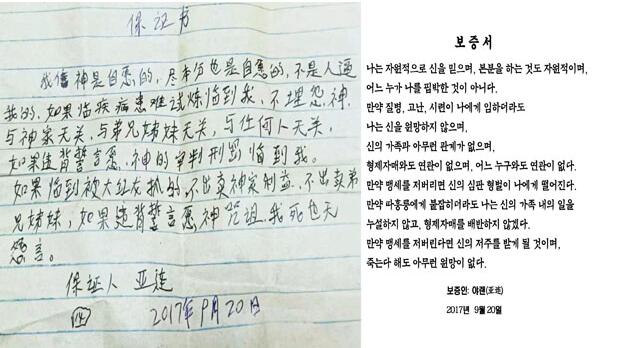 保证书
我信神是自愿的，尽本份也是自愿的，不是人逼
我的，如果临疾病患难试炼临到我，不埋怨神，
与神家无关，与弟兄姊妹无关，与任何人无关，
如果违背誓言愿，神的审判刑罚临到我。
如果临到被大红龙抓的，不出卖神家利益，不出卖弟
兄姊妹，如果违背誓言愿神咒诅，我死也无
怨言。
保证人 亚莲
2017年9月20日
보증서
나는 자원적으로 신을 믿으며, 본분을 하는 것도 자원적이며,
어느 누가 나를 핍박한 것이 아니다.
만약 질병, 고난, 시련이 나에게 임하더라도
나는 신을 원망하지 않으며,
신의 가족과 아무런 관계가 없으며,
형제자매와도 연관이 없으며, 어느 누구와도 연관이 없다.
만약 맹세를 저버리면 신의 심판 형벌이 나에게 떨어진다.
만약 따홍룽에게 붙잡히더라도 나는 신의 가족 내의 일을
누설하지 않고, 형제자매를 배반하지 않겠다.
만약 맹세를 저버린다면 신의 저주를 받게 될 것이며,
죽는다 해도 아무런 원망이 없다.
보증인: 야롄(亚莲)
2017년 9월 20일